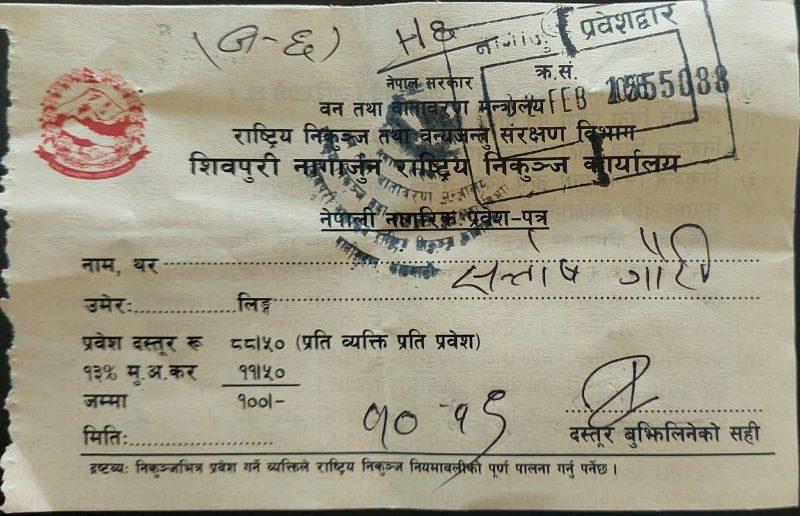 (ज-६) HG
नागार्जु प्रवेशद्वार
नेपाल सरकार
क्र.सं.
वन तथा वातावरण मन्त्रालय
FEB 055088
राष्ट्रिय निकुञ्ज तथा वन्यजन्तु संरक्षण विभाग
शिवपुरी नागार्जुन राष्ट्रिय निकुञ्ज कार्यालय
नेपाली नागरिक प्रवेश-पत्र
नाम, थर सन्तोष गौरी
उमेर: लिङ्ग
प्रवेश दस्तूर रू ८८।५० (प्रति व्यक्ति प्रति प्रवेश)
१३% मु.अ.कर ११।५०
जम्मा १००।-
मिति: १०-१९
दस्तूर बुझिलिनेको सही
द्रष्टव्य: निकुञ्जभित्र प्रवेश गर्ने व्यक्तिले राष्ट्रिय निकुञ्ज नियमावलीको पूर्ण पालना गर्नु पर्नेछ ।